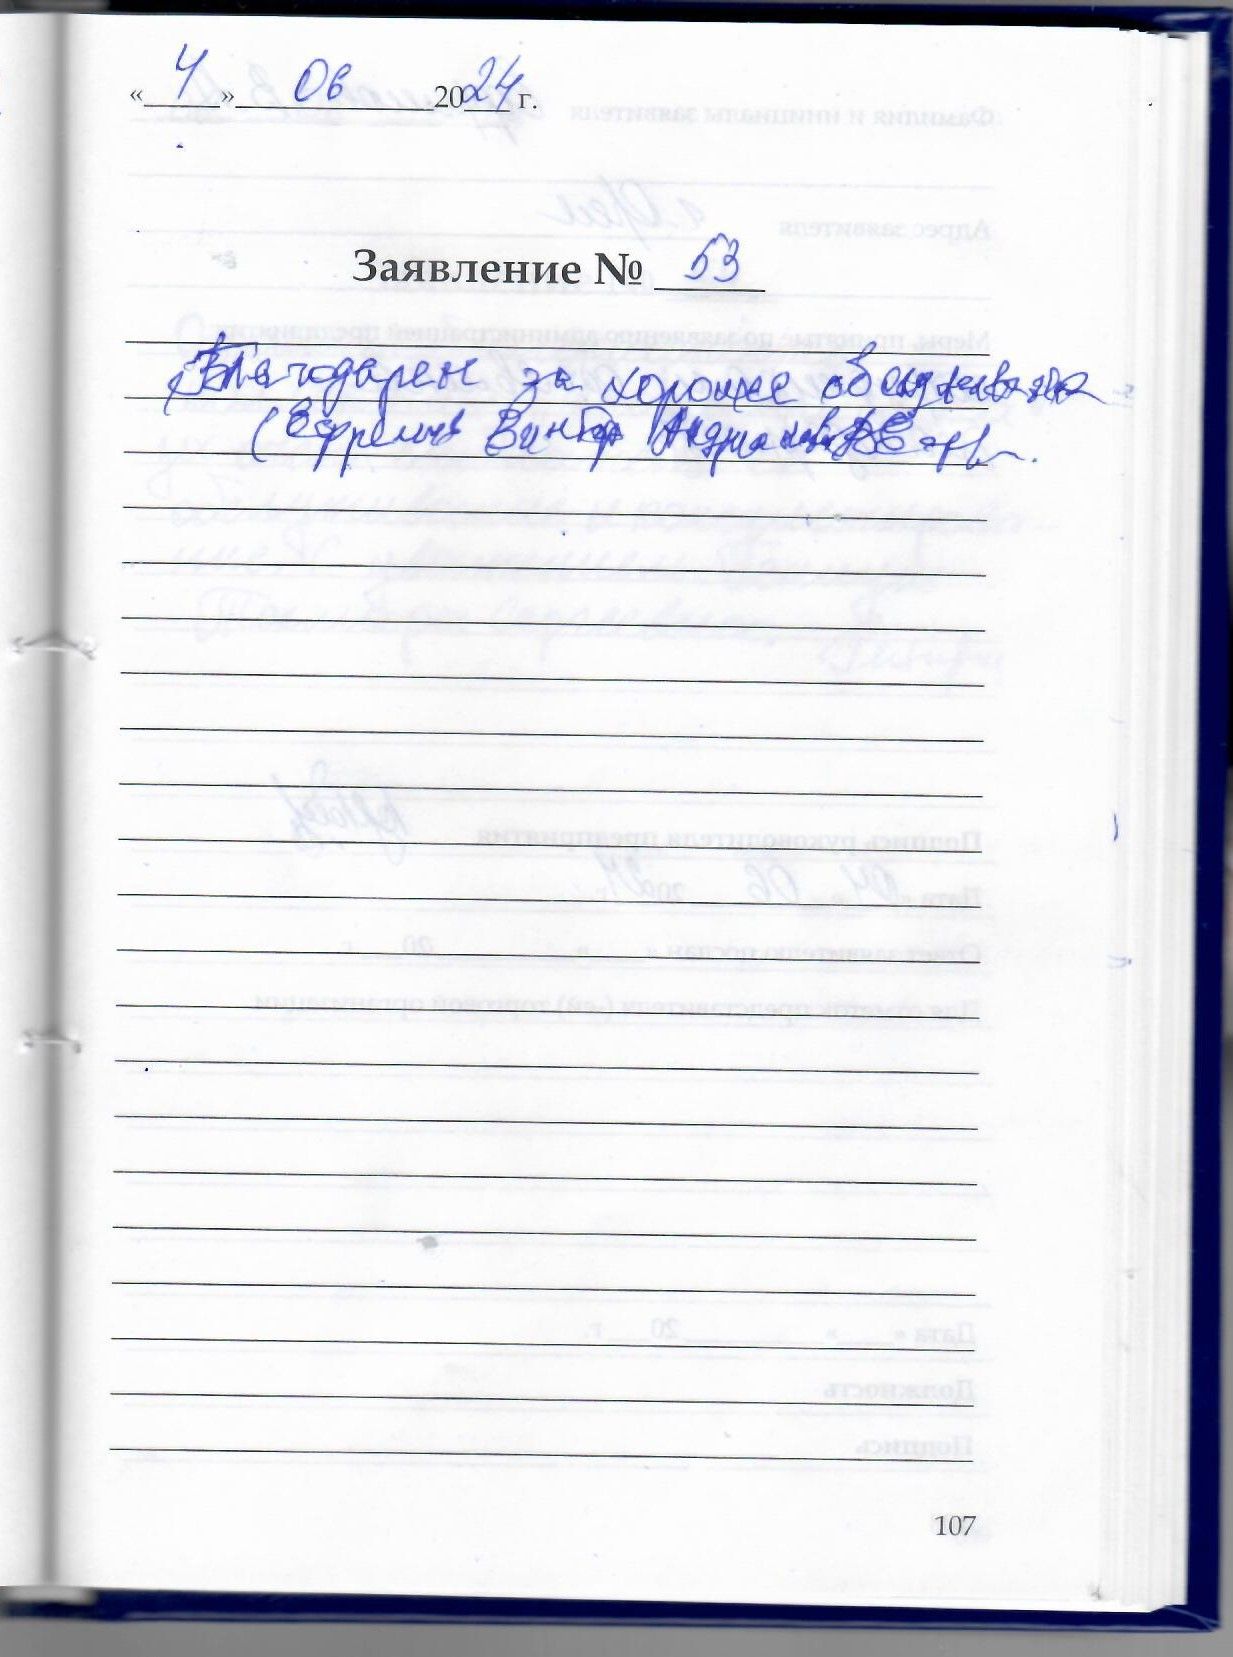 «4» 06 2024 г.
Заявление № 53
Благодарен за хорошее обслуживание
(Ефремов Виктор
107